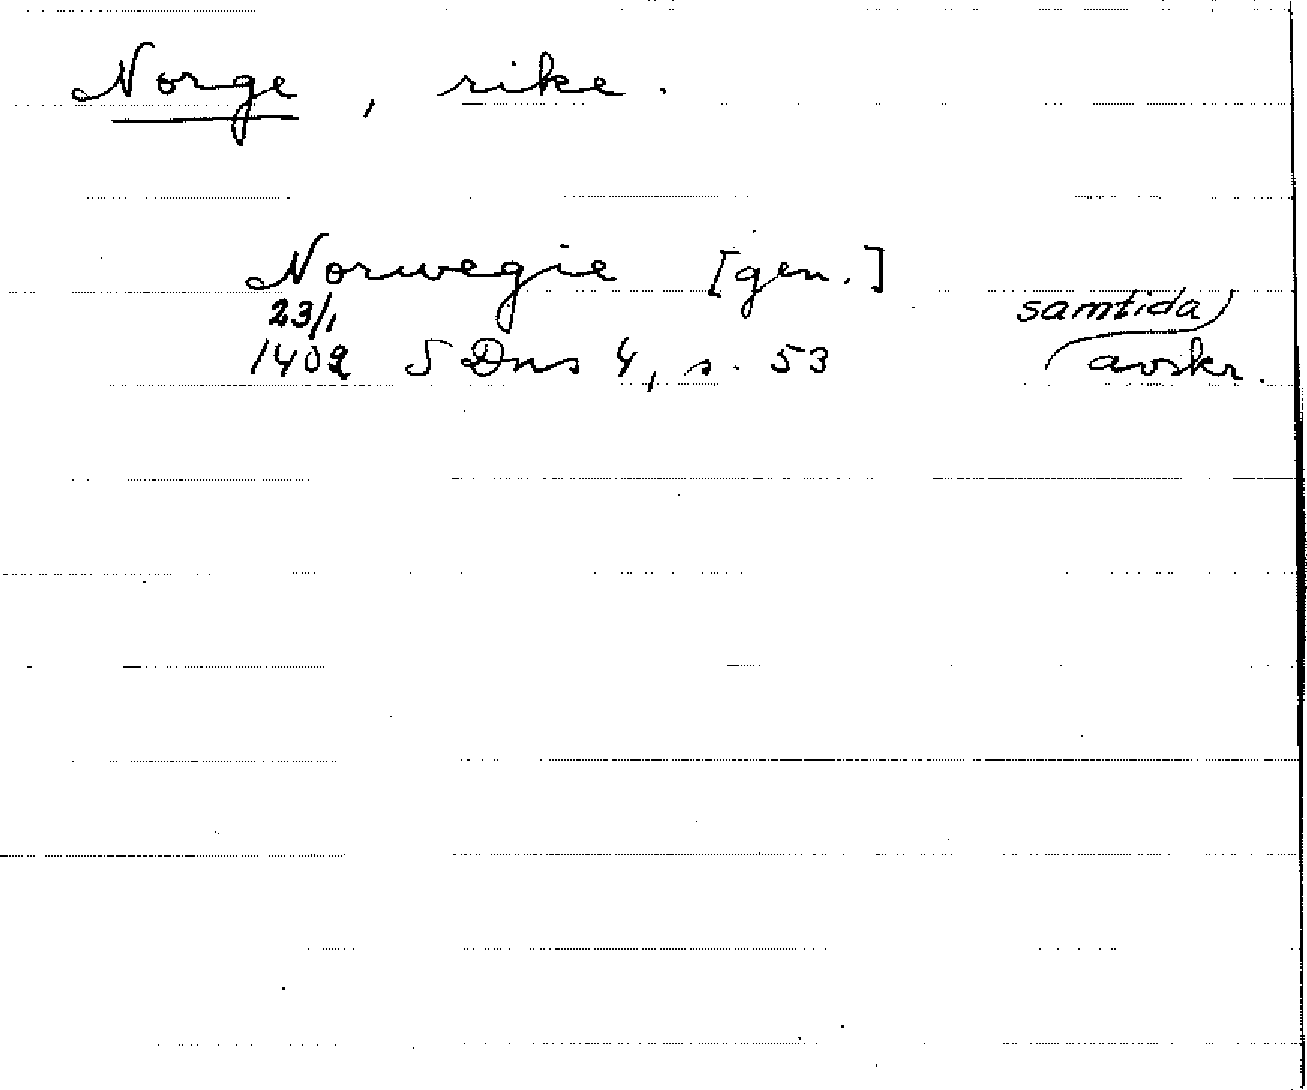 Norge, rike.
Norwegie [gen.]
23/1 samtida
1402 SDns 4, s. 53 avskr.